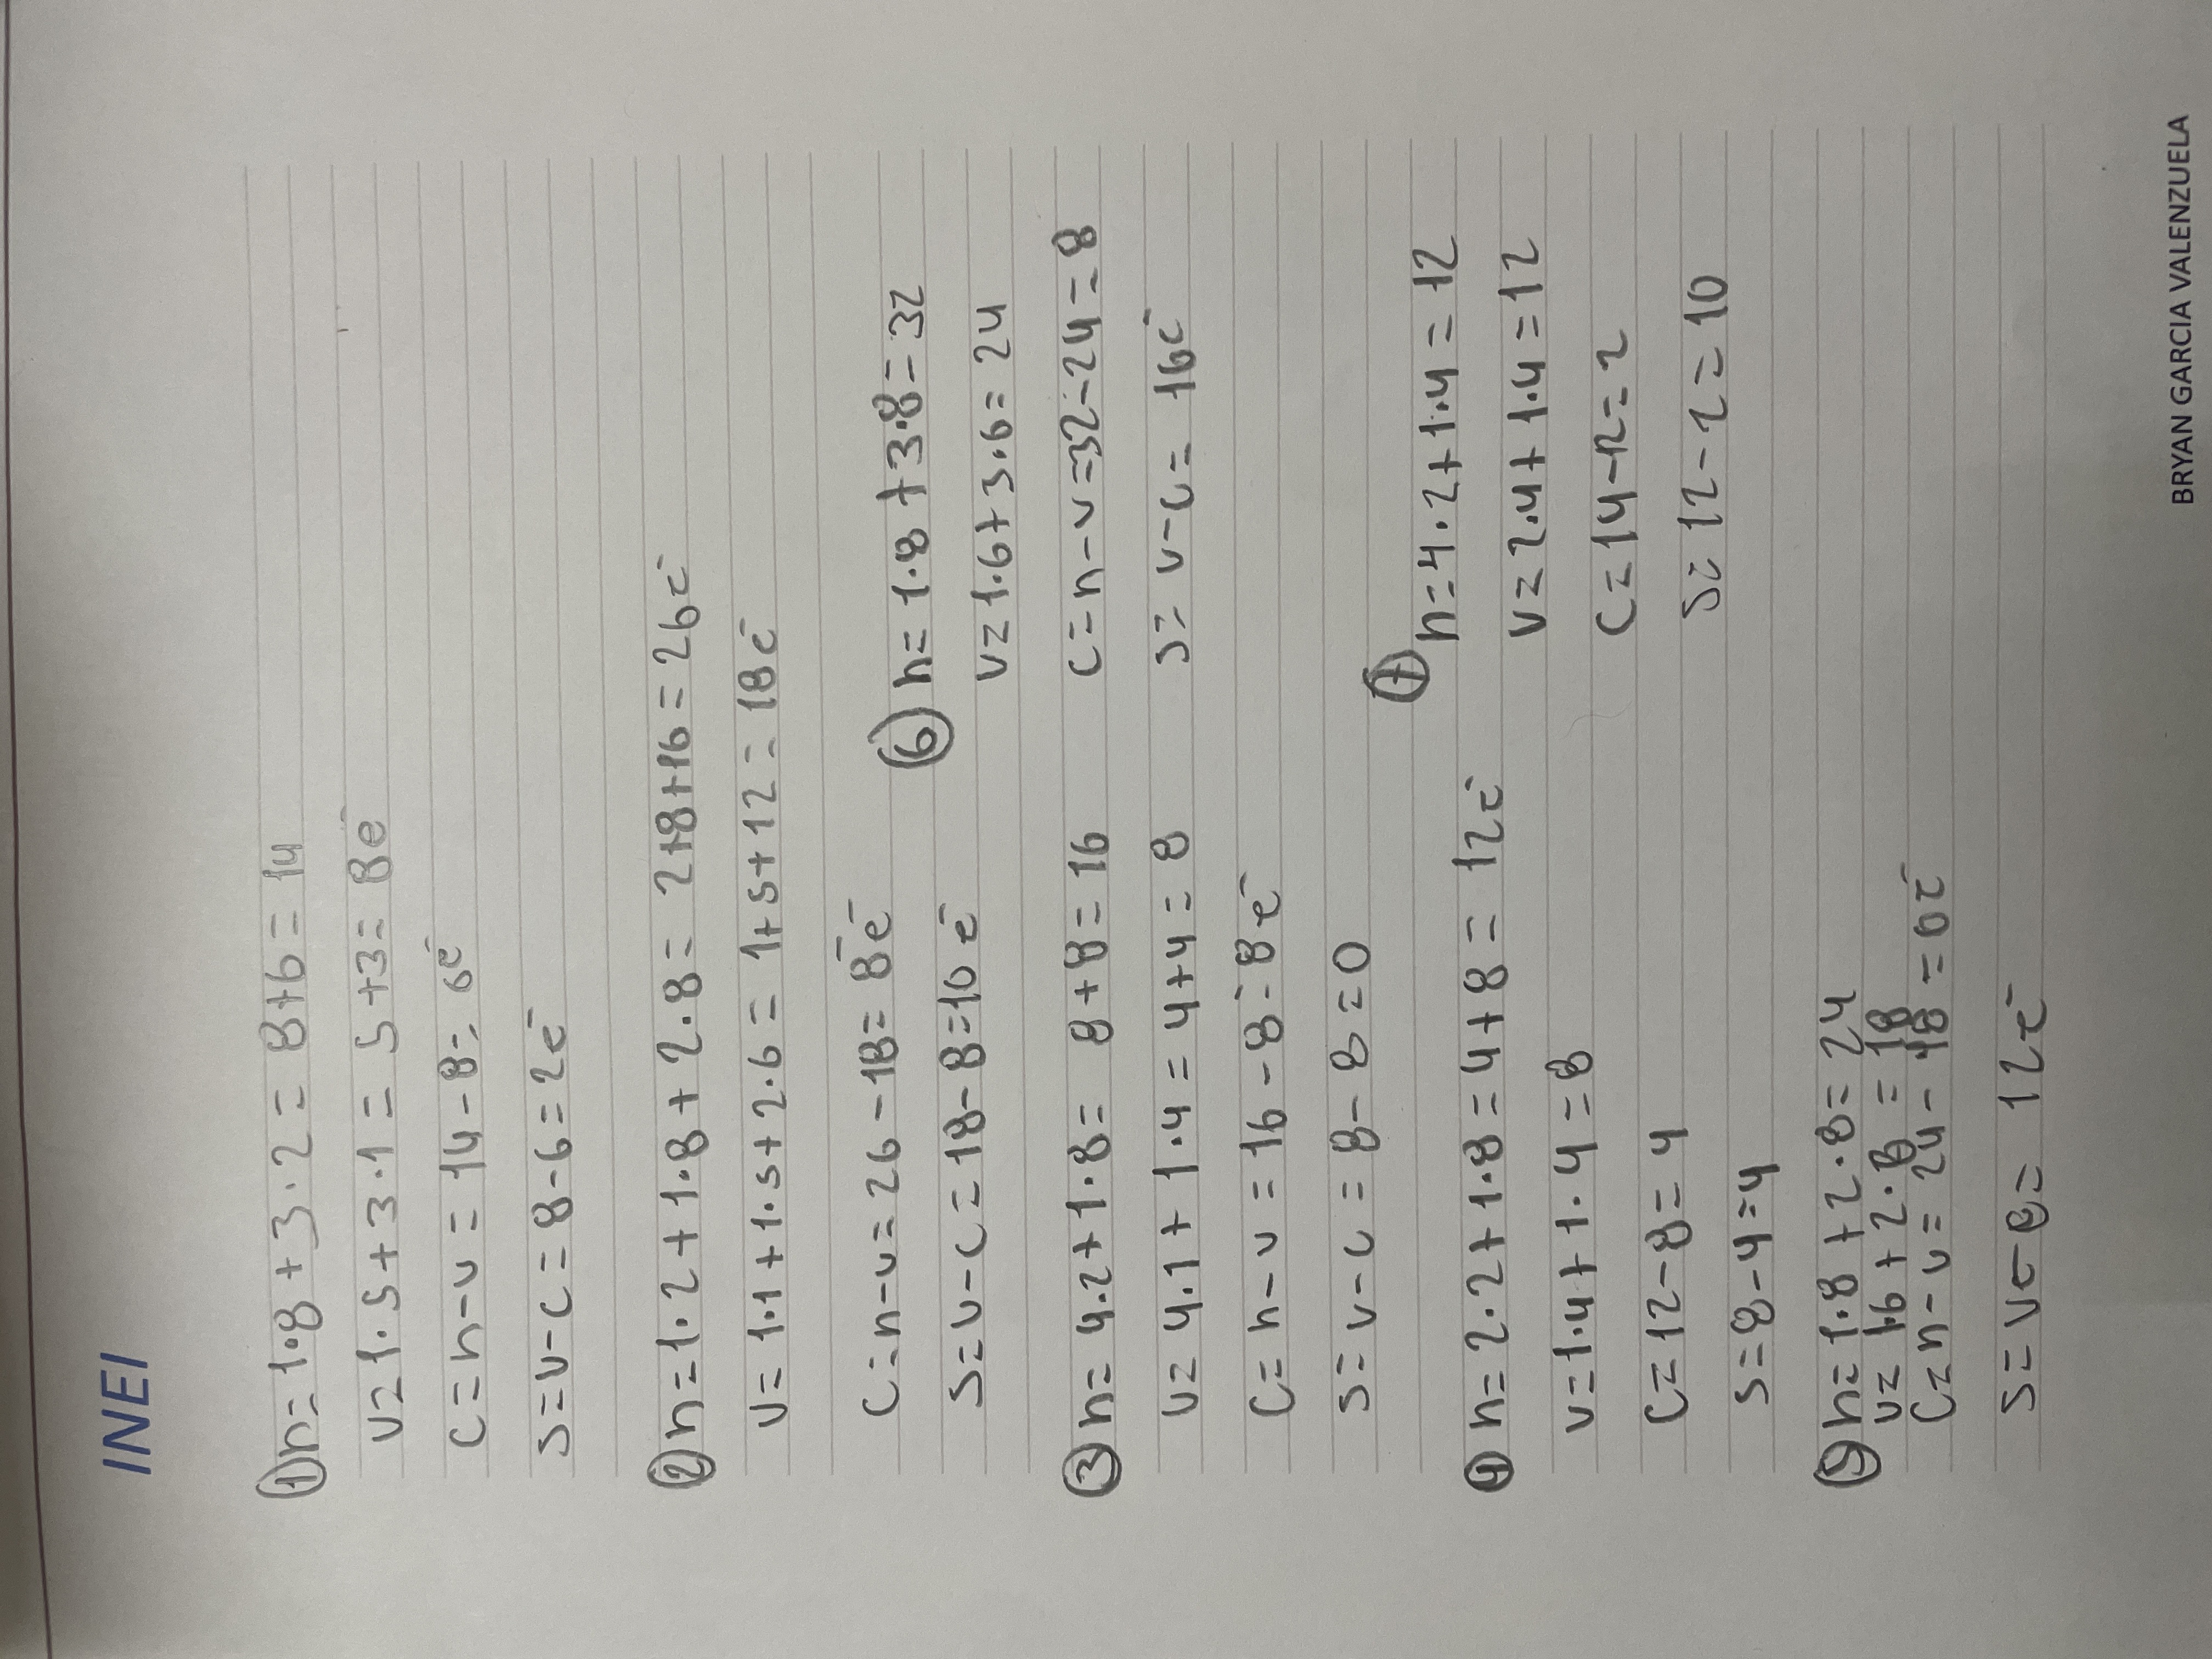 INEI
① n=1·8+3·2=8+6=14
v=1·5+3·1=5+3=8e⁻
c=n-v=14-8=6e⁻
s=v-c=8-6=2e⁻
② n=1·2+1·8+2·8=2+8+16=26e⁻
v=1·1+1·5+2·6=1+5+12=18e⁻
c=n-v=26-18=8e⁻
s=v-c=18-8=10e⁻
③ n=4·2+1·8=8+8=16
v=4·1+1·4=4+4=8
c=n-v=16-8=8e⁻
s=v-c=8-8=0
④ n=2·2+1·8=4+8=12e⁻
v=1·4+1·4=8
c=12-8=4
s=8-4=4
⑤ n=1·8+2·8=24
v=1·6+2·6=18
c=n-v=24-18=6e⁻
s=v-c=12e⁻
⑥ n=1·8+3·8=32
v=1·6+3·6=24
c=n-v=32-24=8
s=v-c=16e⁻
⑦ n=4·2+1·4=12
v=2·4+1·4=12
c=14-12=2
s=12-2=10
BRYAN GARCIA VALENZUELA